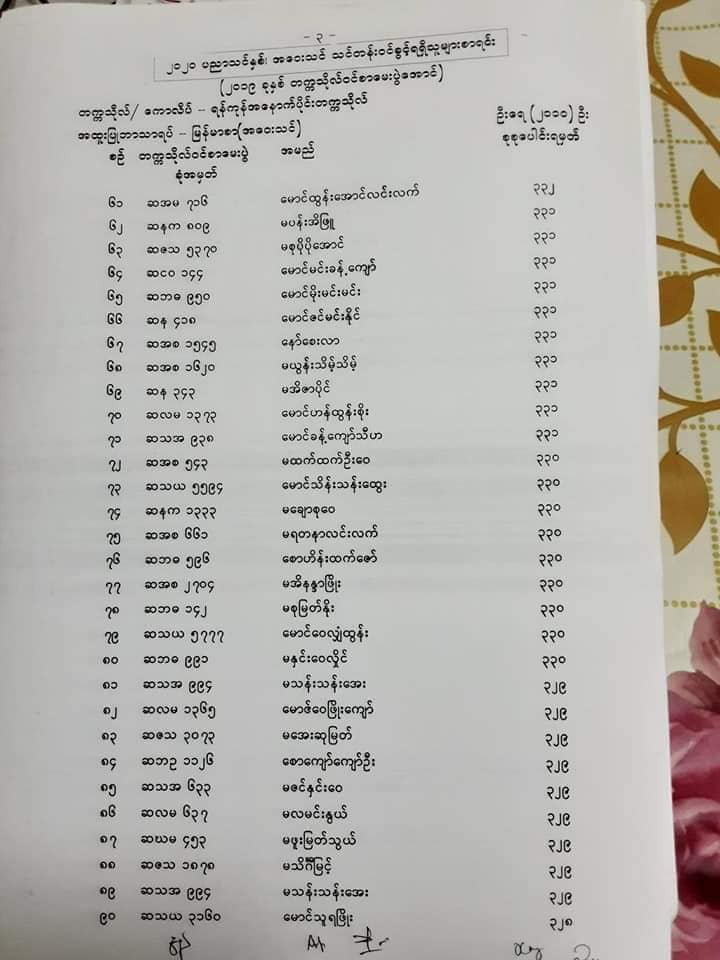 - ၃ -
၂၀၂၀ ပညာသင်နှစ်၊ အဝေးသင် သင်တန်းဝင်ခွင့်ရရှိသူများစာရင်း
(၂၀၁၉ ခုနှစ် တက္ကသိုလ်ဝင်စာမေးပွဲအောင်)
တက္ကသိုလ်/ ကောလိပ် - ရန်ကုန်အနောက်ပိုင်းတက္ကသိုလ်
အထူးပြုဘာသာရပ် - မြန်မာစာ(အဝေးသင်) ဦးရေ (၂၁၁၁) ဦး
စဉ် တက္ကသိုလ်ဝင်စာမေးပွဲ အမည် စုစုပေါင်းရမှတ်
ခုံအမှတ်
၆၁ ဆအမ ၇၁၆ မောင်ထွန်းအောင်လင်းလက် ၃၃၂
၆၂ ဆနက ၈၀၉ မပန်းအိဖြူ ၃၃၁
၆၃ ဆဇသ ၅၃၇၀ မစုပိုပိုအောင် ၃၃၁
၆၄ ဆင၀ ၁၄၄ မောင်မင်းခန့်ကျော် ၃၃၁
၆၅ ဆဘဓ ၉၅၀ မောင်မိုးမင်းမင်း ၃၃၁
၆၆ ဆန ၄၁၈ မောင်ဇင်မင်းနိုင် ၃၃၁
၆၇ ဆအစ ၁၅၄၅ နော်စေးလာ ၃၃၁
၆၈ ဆအစ ၁၆၂၀ မယွန်းသိမ့်သိမ့် ၃၃၁
၆၉ ဆန ၃၄၃ မအိဇာပိုင် ၃၃၁
၇၀ ဆလမ ၁၃၇၃ မောင်ဟန်ထွန်းစိုး ၃၃၁
၇၁ ဆသအ ၉၃၈ မောင်ခန့်ကျော်သီဟ ၃၃၁
၇၂ ဆအစ ၅၄၃ မထက်ထက်ဦးဝေ ၃၃၀
၇၃ ဆသယ ၅၅၉၄ မောင်သိန်းသန်းထွေး ၃၃၀
၇၄ ဆနက ၁၃၃၃ မချောစုဝေ ၃၃၀
၇၅ ဆအစ ၆၆၁ မရတနာလင်းလက် ၃၃၀
၇၆ ဆဘဓ ၅၉၆ စောဟိန်းထက်ဇော် ၃၃၀
၇၇ ဆအစ ၂၇၀၄ မအိနန္ဒာဖြိုး ၃၃၀
၇၈ ဆဘဓ ၁၄၂ မစုမြတ်နိုး ၃၃၀
၇၉ ဆသယ ၅၇၇၇ မောင်ဝေလျှံထွန်း ၃၃၀
၈၀ ဆဘဓ ၉၉၁ မနှင်းဝေလှိုင် ၃၃၀
၈၁ ဆသအ ၉၉၄ မသန်းသန်းအေး ၃၂၉
၈၂ ဆလမ ၁၃၆၅ မောဇ်ဝေဖြိုးကျော် ၃၂၉
၈၃ ဆဇသ ၃၀၇၃ မအေးဆုမြတ် ၃၂၉
၈၄ ဆဘဥ ၁၁၂၆ စောကျော်ကျော်ဦး ၃၂၉
၈၅ ဆသအ ၆၃၃ မဇင်နှင်းဝေ ၃၂၉
၈၆ ဆလမ ၆၃၇ မလမင်းနွယ် ၃၂၉
၈၇ ဆဃမ ၄၅၃ မဖူးမြတ်သွယ် ၃၂၉
၈၈ ဆဇသ ၁၈၇၈ မသိင်္ဂီမြင့် ၃၂၉
၈၉ ဆသအ ၉၉၄ မသန်းသန်းအေး ၃၂၉
၉၀ ဆသယ ၃၁၆၀ မောင်သူရဖြိုး ၃၂၈